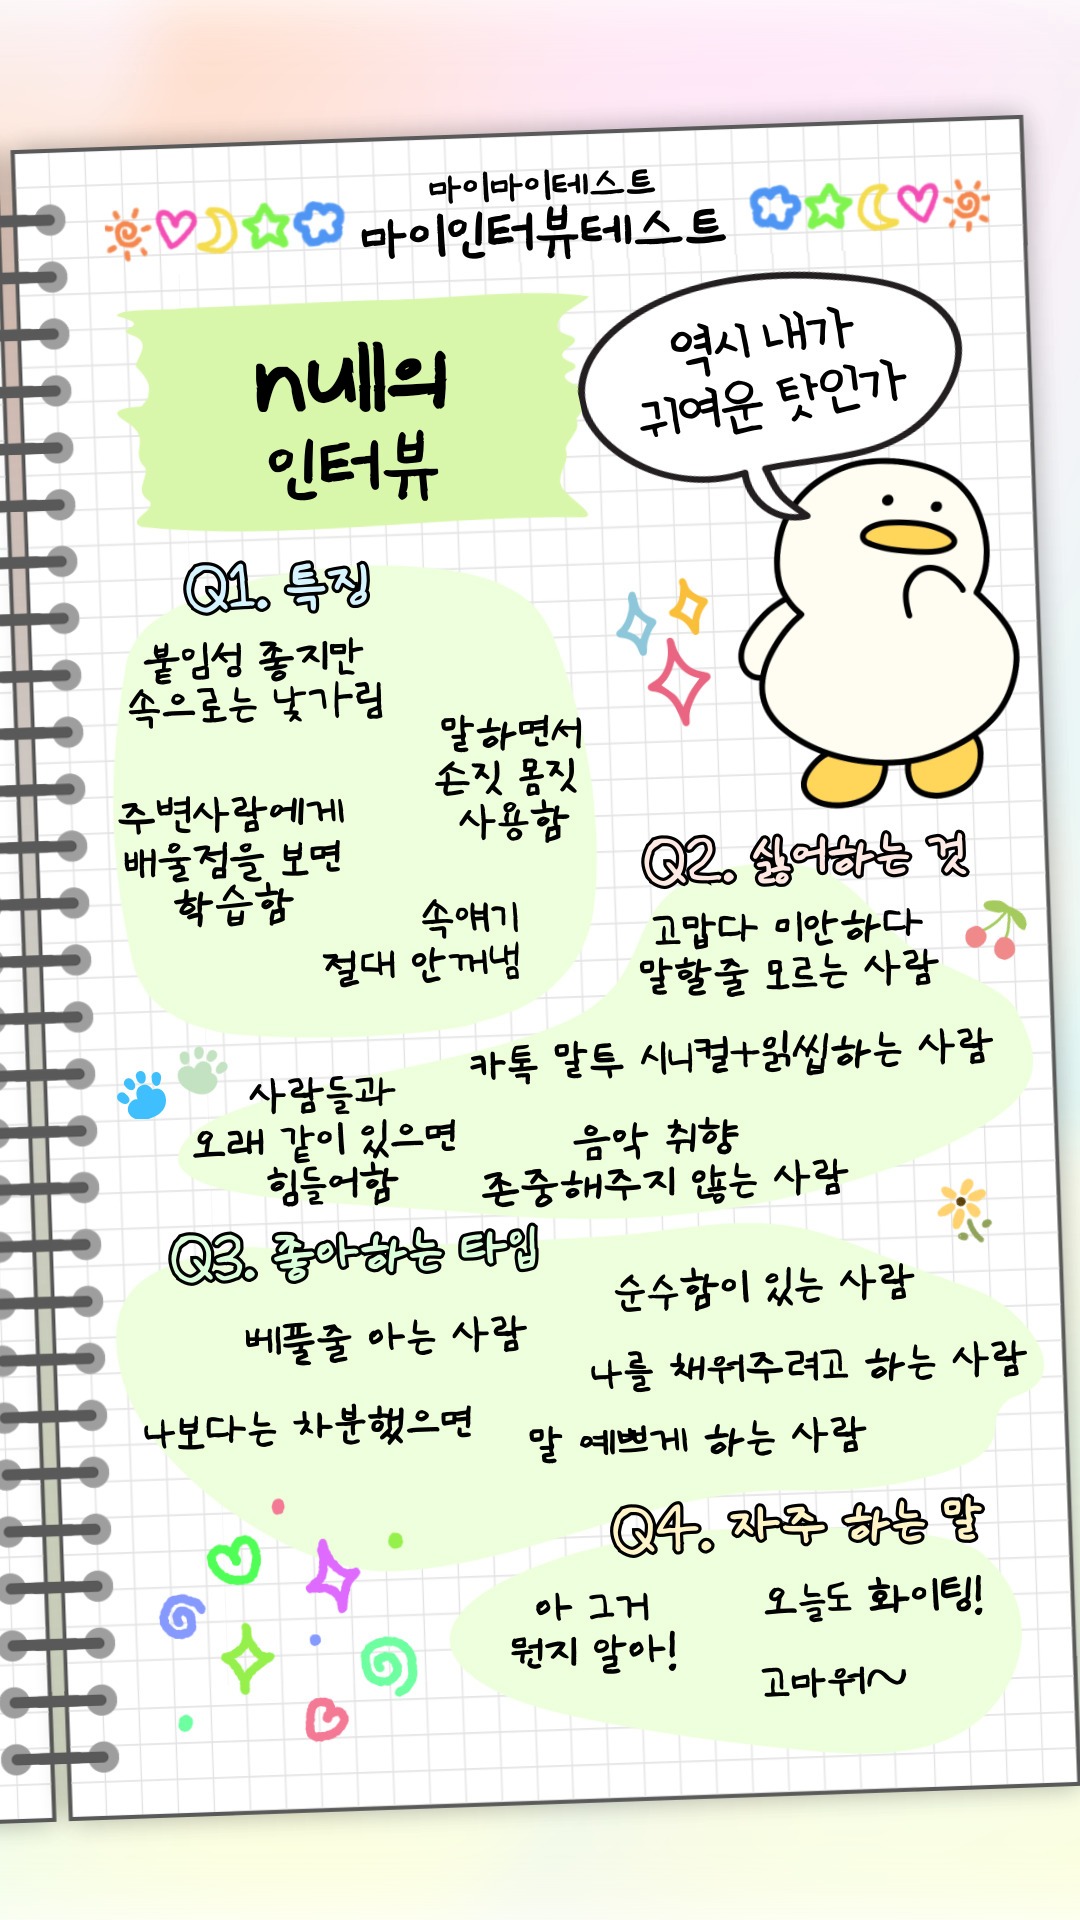 마이마이테스트
마이인터뷰테스트
null의
인터뷰
역시 내가
귀여운 탓인가
Q1. 특징
붙임성 좋지만
속으로는 낯가림
말하면서
손짓 몸짓
사용함
주변사람에게
배울점을 보면
학습함
속얘기
절대 안꺼냄
Q2. 싫어하는 것
고맙다 미안하다
말할줄 모르는 사람
카톡 말투 시니컬+읽씹하는 사람
사람들과
오래 같이 있으면
힘들어함
음악 취향
존중해주지 않는 사람
Q3. 좋아하는 타입
순수함이 있는 사람
베풀줄 아는 사람
나를 채워주려고 하는 사람
나보다는 차분했으면
말 예쁘게 하는 사람
Q4. 자주 하는 말
아 그거
뭔지 알아!
오늘도 화이팅!
고마워~